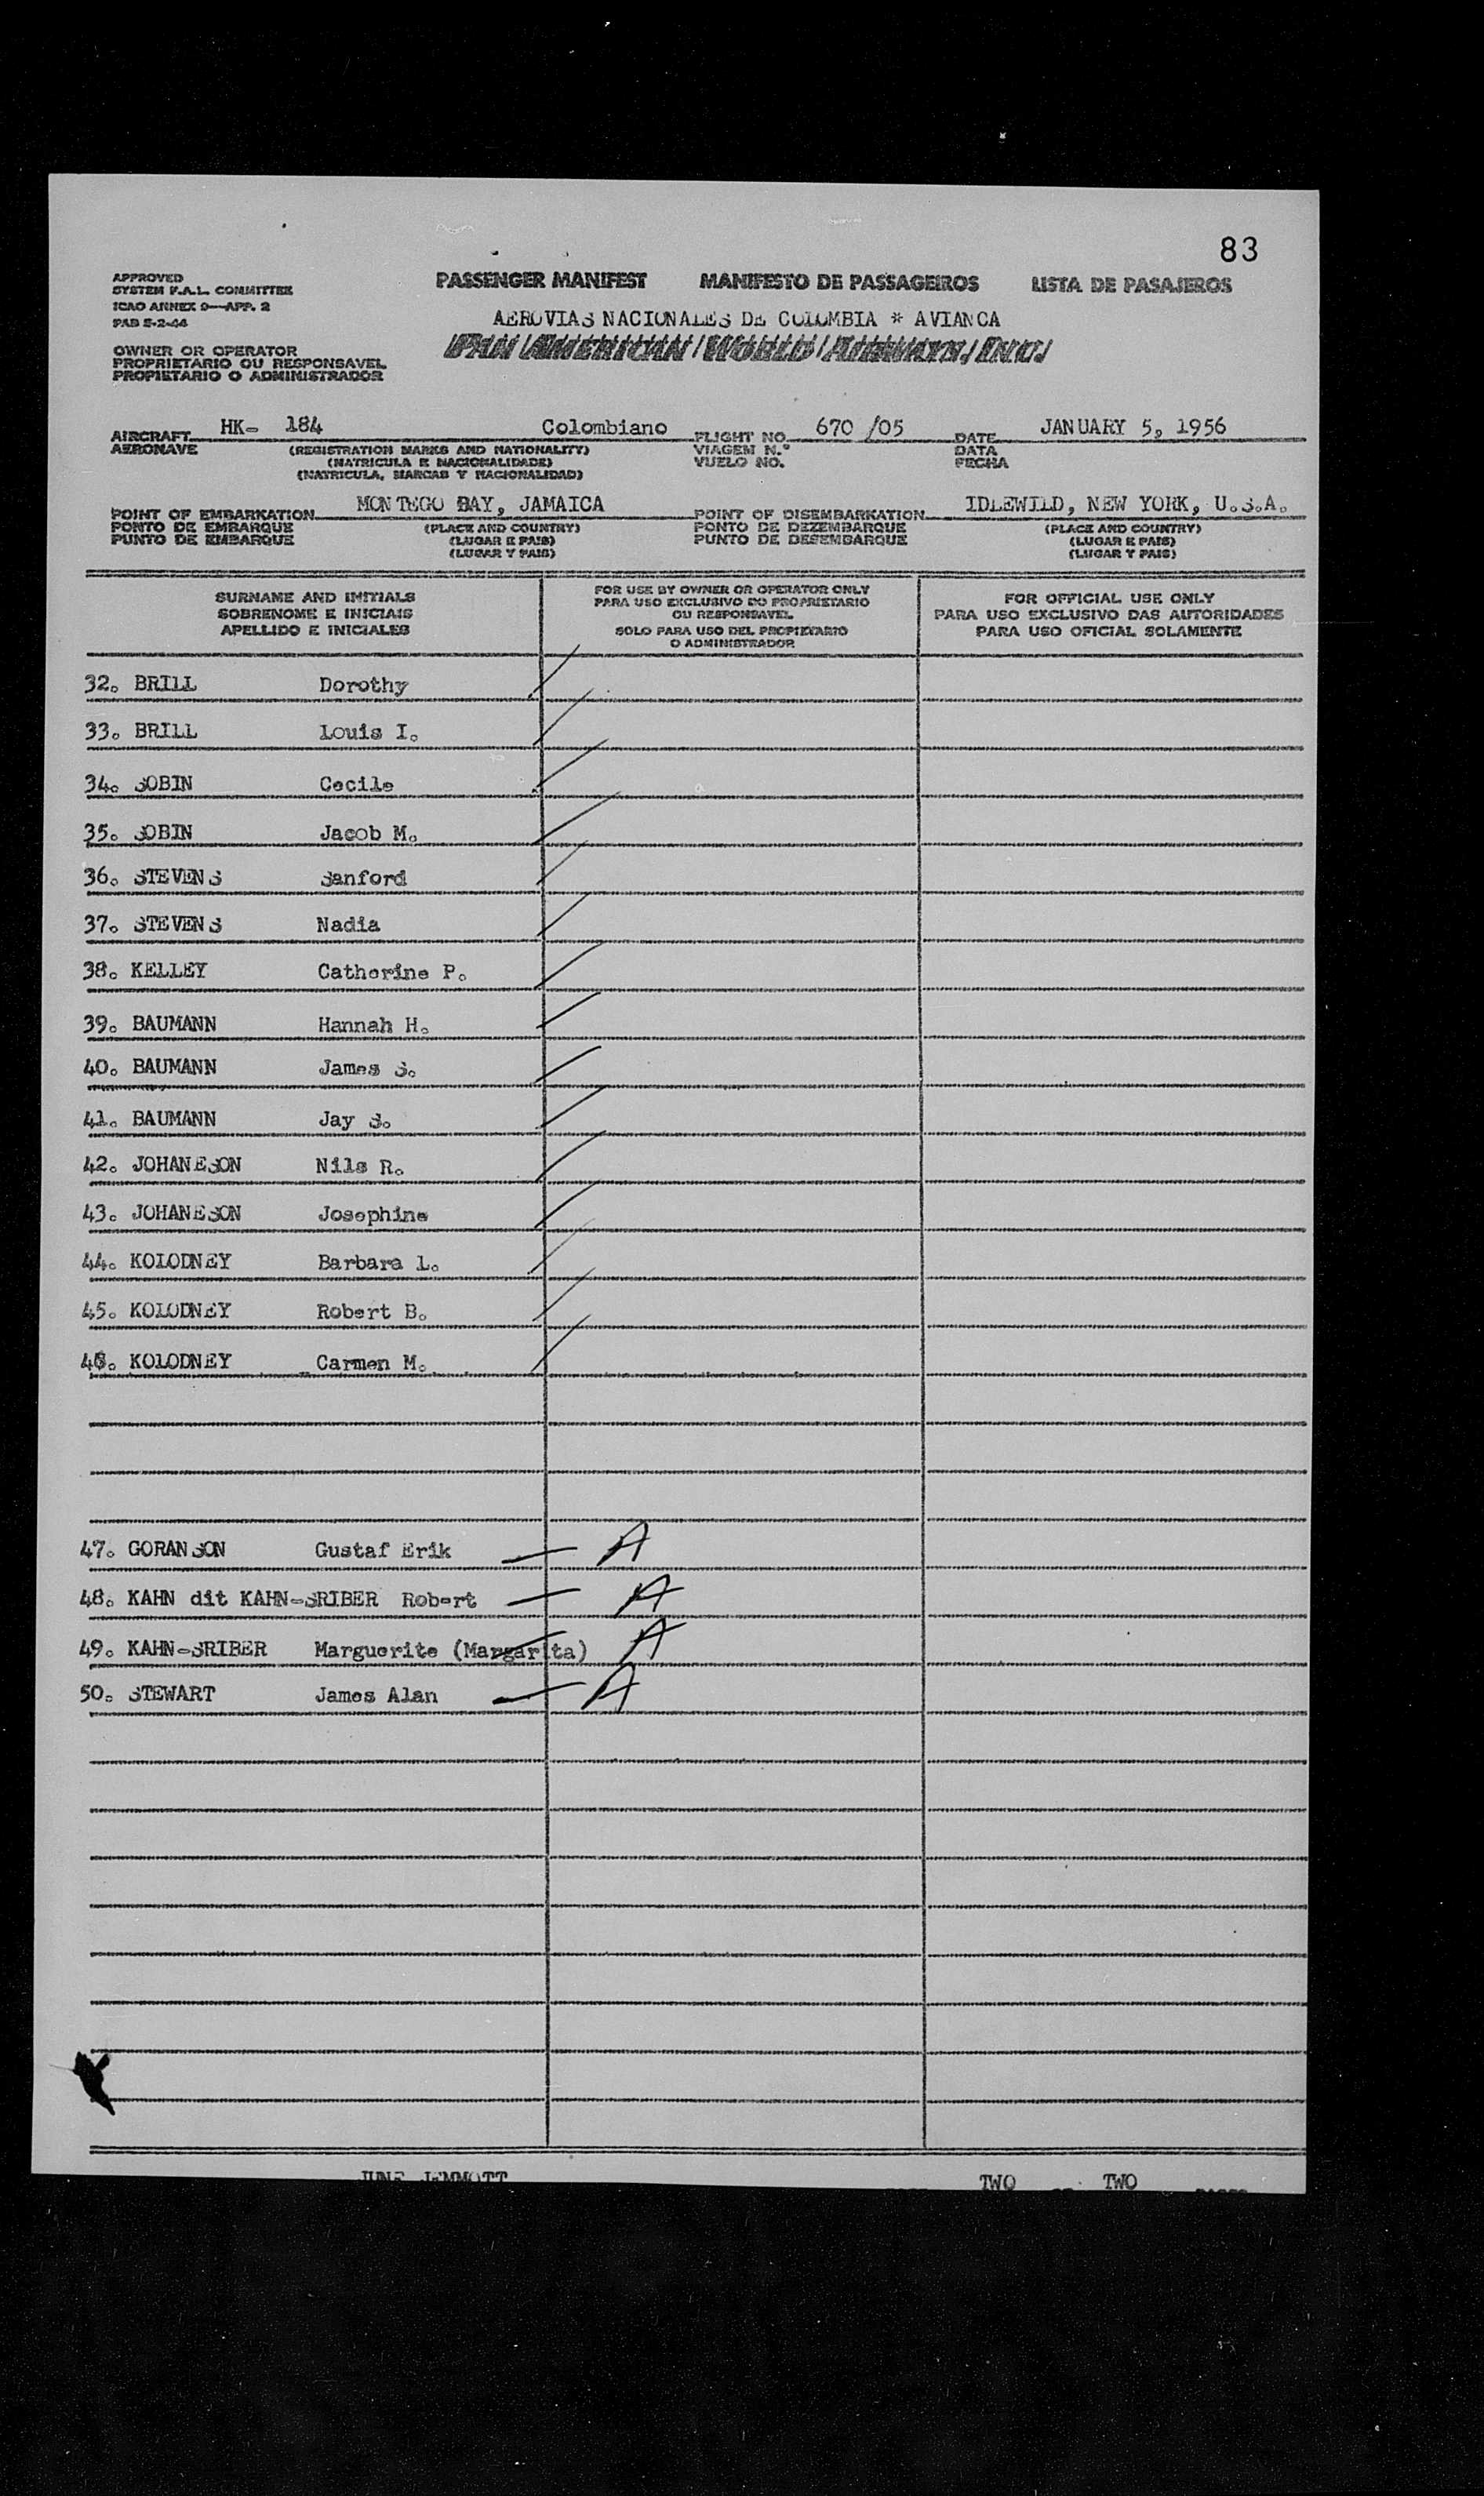 83
APPROVED
SYSTEM F.A.L. COMMITTEE
ICAO ANNEX 9—APP. 2
PAB 5-2-44
PASSENGER MANIFEST MANIFESTO DE PASSAGEIROS LISTA DE PASAJEROS
AEROVIAS NACIONALES DE COLOMBIA * AVIANCA
PAN AMERICAN WORLD AIRWAYS, INC.
OWNER OR OPERATOR
PROPRIETARIO OU RESPONSAVEL
PROPIETARIO O ADMINISTRADOR
AIRCRAFT HK- 184 Colombiano FLIGHT NO. 670 /05 DATE JANUARY 5, 1956
AERONAVE (REGISTRATION MARKS AND NATIONALITY) VIAGEM N.º DATA
(MATRICULA E NACIONALIDADE) VUELO NO. FECHA
(MATRICULA, MARCAS Y NACIONALIDAD)
POINT OF EMBARKATION MONTEGO BAY, JAMAICA POINT OF DISEMBARKATION IDLEWILD, NEW YORK, U.S.A.
PONTO DE EMBARQUE (PLACE AND COUNTRY) PONTO DE DEZEMBARQUE (PLACE AND COUNTRY)
PUNTO DE EMBARQUE (LUGAR E PAIS) PUNTO DE DESEMBARQUE (LUGAR E PAIS)
(LUGAR Y PAIS) (LUGAR Y PAIS)
SURNAME AND INITIALS
SOBRENOME E INICIAIS
APELLIDO E INICIALES
FOR USE BY OWNER OR OPERATOR ONLY
PARA USO EXCLUSIVO DO PROPRIETARIO
OU RESPONSAVEL
SOLO PARA USO DEL PROPIETARIO
O ADMINISTRADOR
FOR OFFICIAL USE ONLY
PARA USO EXCLUSIVO DAS AUTORIDADES
PARA USO OFICIAL SOLAMENTE
32. BRILL Dorothy
33. BRILL Louis I.
34. SOBIN Cecile
35. SOBIN Jacob M.
36. STEVENS Sanford
37. STEVENS Nadia
38. KELLEY Catherine P.
39. BAUMANN Hannah H.
40. BAUMANN James S.
41. BAUMANN Jay S.
42. JOHANESON Nils R.
43. JOHANESON Josephine
44. KOLODNEY Barbara L.
45. KOLODNEY Robert B.
46. KOLODNEY Carmen M.
47. GORANSON Gustaf Erik A
48. KAHN dit KAHN-SRIBER Robert A
49. KAHN-SRIBER Marguerite (Margarita) A
50. STEWART James Alan A
JUNE JEMMOTT TWO TWO